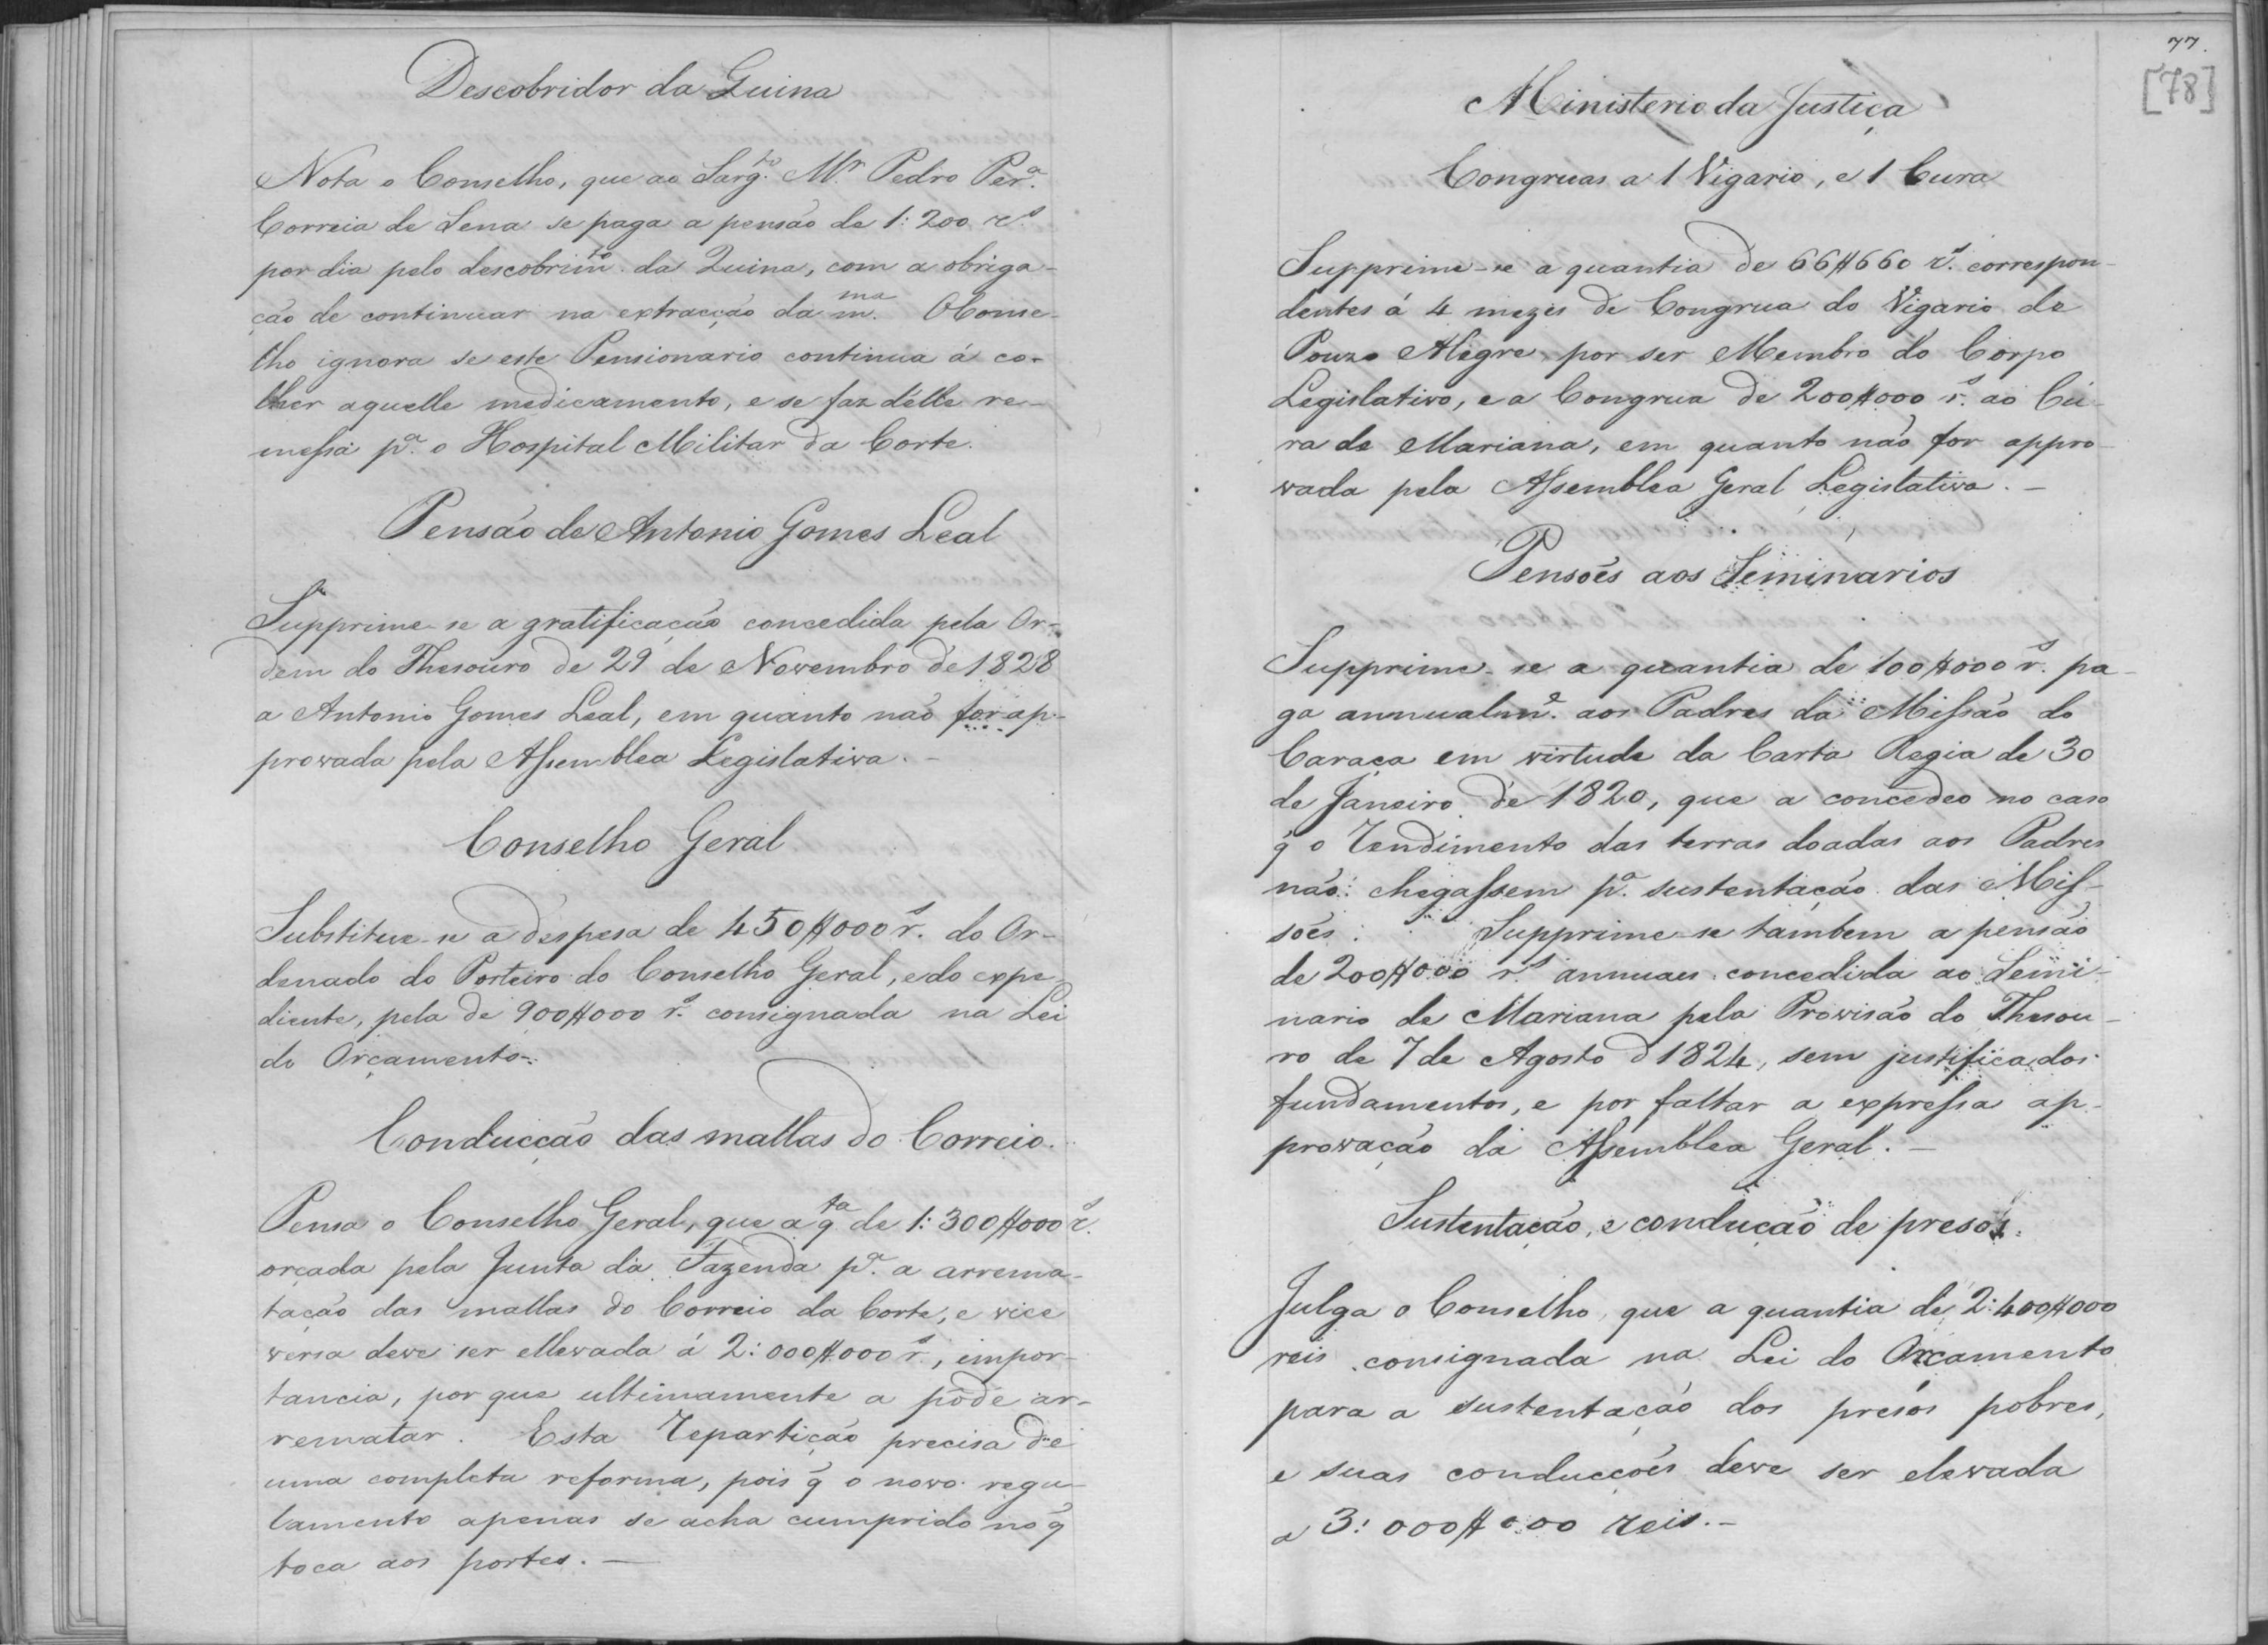 Descobridor da Quina
Nota o Conselho, que ao Sarg.to M.r Pedro Per.a
Correia de Sena se paga a pensão de 1:200 r.s
por dia pelo descobrim.to da Quina, com a obriga-
ção de continuar na extracção da m.ma O Conse-
lho ignora se este Pensionario continua á co-
lher aquelle medicamento, e se faz délle re-
messa p.a o Hospital Militar da Corte.
Pensão de Antonio Gomes Leal
Supprime-se a gratificação concedida pela Or-
dem do Thesouro de 29 de Novembro de 1828
a Antonio Gomes Leal, em quanto não for ap-
provada pela Assemblea Legislativa. -
Conselho Geral
Substitue-se a despesa de 450$000 r.s do Or-
denado do Porteiro do Conselho Geral, e do expe
diente, pela de 900$000 r.s consignada na Lei
do Orçamento.
Conducção das mallas do Correio.
Pensa o Conselho Geral, que a q.ta de 1:300$000 r.s
orçada pela Junta da Fazenda p.a a arrema-
tação das mallas do Correio da Corte, e vice
versa deve ser ellevada á 2:000$000 r.s, impor-
tancia, por que ultimamente a pôde ar-
rematar. Esta Repartição precisa de
uma completa reforma, pois q̃ o novo regu-
lamento apenas se acha cumprido no q̃
toca aos portes. —
77.
[78]
Ministerio da Justiça
Congruas a 1 Vigario, e 1 Cura
Supprime-se a quantia de 66$660 r.s correspon-
dentes á 4 mezes de Congrua do Vigario de
Pouzo Alegre por ser Membro do Corpo
Legislativo, e a Congrua de 200$000 r.s ao Cu-
ra de Mariana, em quanto não for appro-
vada pela Assemblea Geral Legislativa. -
Pensões aos Seminarios
Supprime-se a quantia de 100$000 r.s pa-
ga annualm.e aos Padres da Missão do
Caraça em virtude da Carta Regia de 30
de Janeiro de 1820, que a concedeo no caso
q̃ o Rendimento das terras doadas aos Padres
não chegassem p.a sustentação das Mis-
sões. Supprime-se tambem a pensão
de 200$000 r.s annuaes concedida ao Semi-
nario de Mariana pela Provisão do Thesou-
ro de 7 de Agosto d 1824, sem justificados
fundamentos, e por faltar a expressa ap-
provação da Assemblea Geral. -
Sustentação, e condução de presos.
Julga o Conselho, que a quantia de 2:400$000
reis consignada na Lei do Orçamento
para a sustentação dos presos pobres,
e suas conducções deve ser elevada
a 3:000$000 reis. -